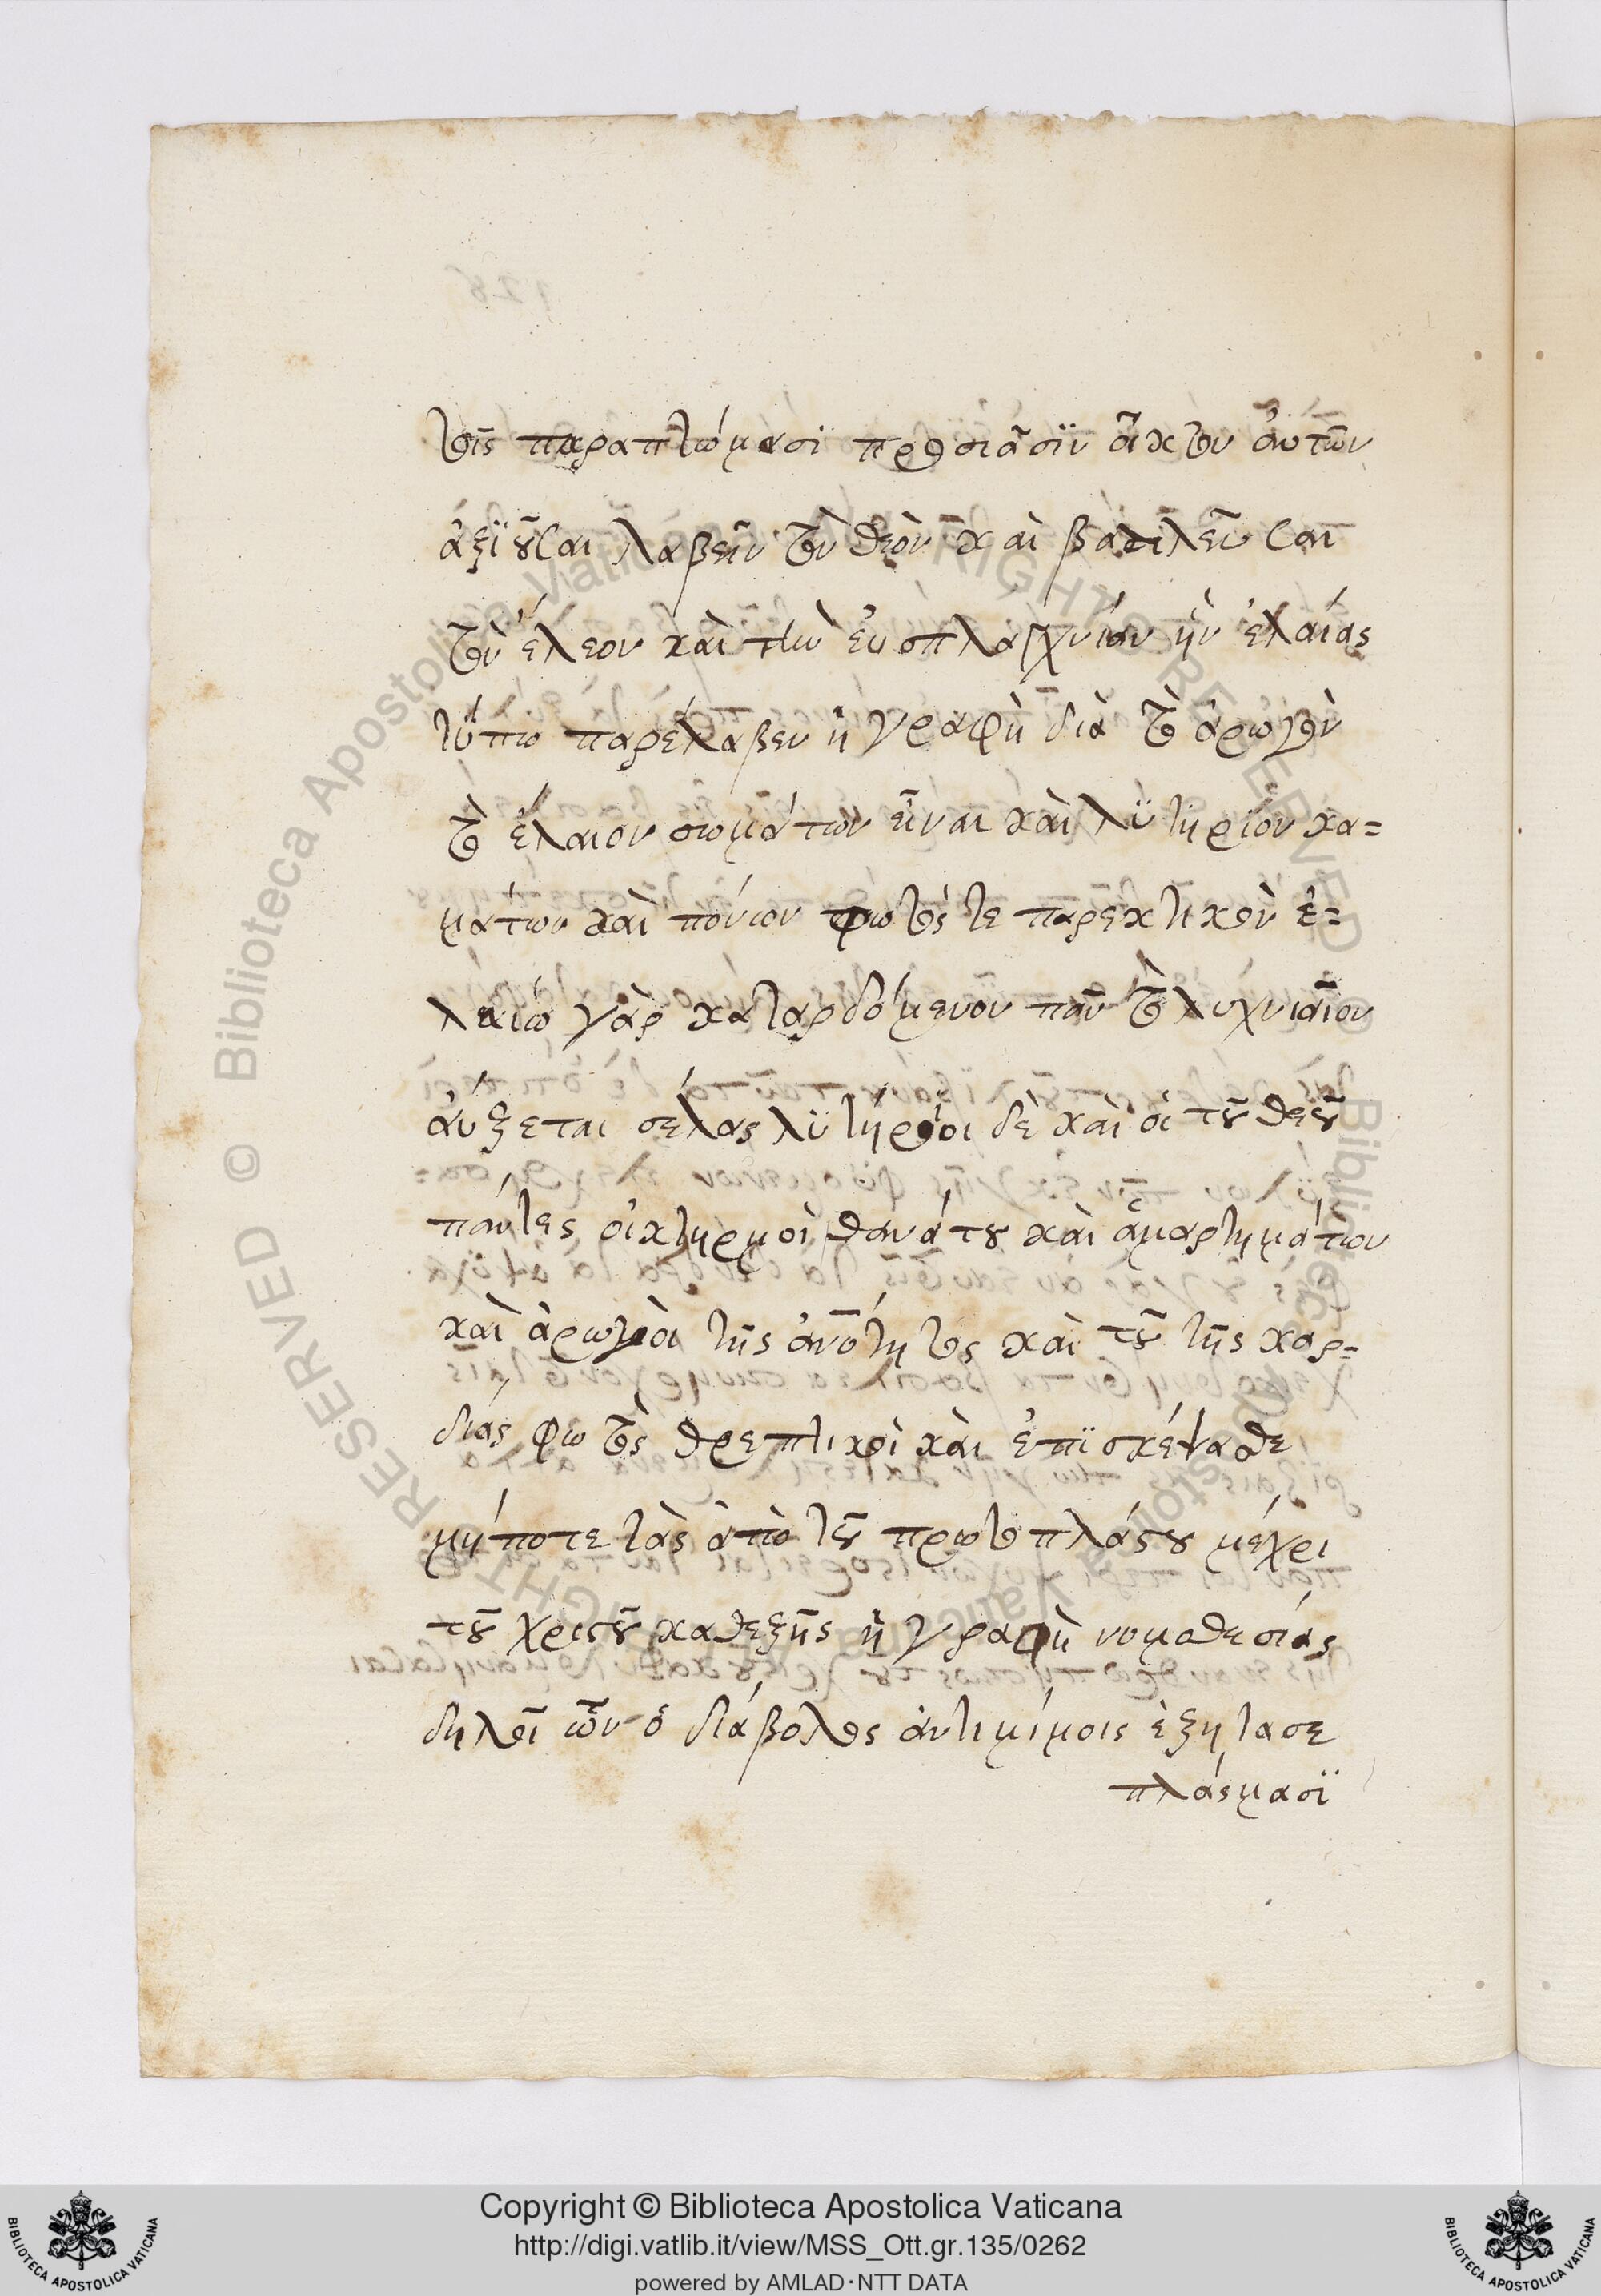 τοῖς παραπτώμασι προσιᾶσϊν οἶκτον αὐτῶν
ἀξϊοῦται λαβεῖν τὸν θεὸν καὶ βασιλεῦσαι
τὸν ἔλεον καὶ τὴν εὐσπλαγχνίαν ἣν ἐλαίας
τύπω παρέλαβεν ἡ γραφὴ διὰ τὸ ἀρωγὸν
τὸ ἔλαιον σωμάτων εἶναι καὶ λϋτήριον κα=
μάτων καὶ πόνων φωτός τε παρεκτικὸν ἐ=
λαίω γὰρ καταρδόμενον πᾶν τὸ λυχνιαῖον
αὔξεται σέλας λϋτήριοι δὲ καὶ οἱ τοῦ θεοῦ
πάντες οἰκτηρμοὶ θανάτου καὶ ἁμαρτημάτων
καὶ ἀρωγοὶ τῆς ἀνότητος καὶ τοῦ τῆς καρ=
δίας φωτὸς θρεπτικοὶ καὶ ἐπϊσκέψασθε
μήποτε τὰς ἀπὸ τοῦ πρωτοπλάστου μέχρι
τοῦ χριστοῦ καθεξῆς ἡ γραφὴ νομοθεσίας
δηλοῖ ὧν ὁ διάβολος ἀντιμίμοις ἐξήτασε
πλάσμασϊ
Copyright © Biblioteca Apostolica Vaticana
http://digi.vatlib.it/view/MSS_Ott.gr.135/0262
powered by AMLAD·NTT DATA
BIBLIOTECA APOSTOLICA VATICANA
BIBLIOTECA APOSTOLICA VATICANA